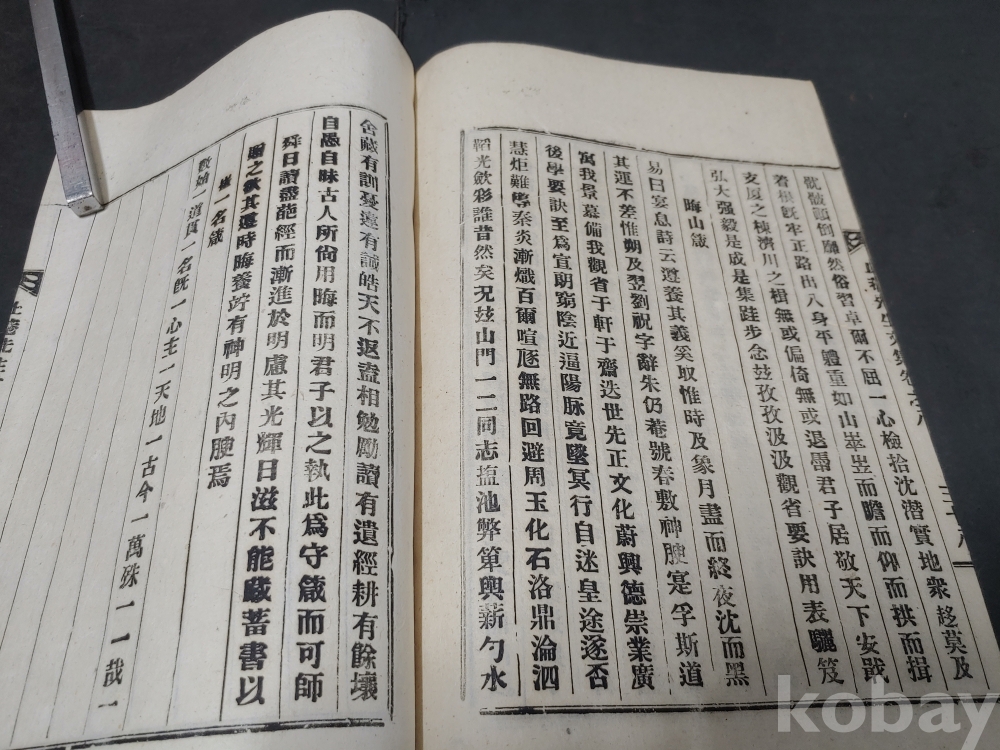 倒 然俗習卓爾不屈一心檢拾沈潛實地衆趍莫及
着根旣牢正路出入身平軆重如山峯岦而瞻而仰而拱而揖
支厦之棟濟川之楫無或偏倚無或退 君子居敬天下安
弘大强毅是成是集跬步念玆孜孜汲汲觀省要訣用表 笈
晦山箴
易曰宴息詩云遵養其義奚取惟時及象月盡而終夜沈而黑
其運不差惟朔及翌劉祝字辭朱仍菴號春敷神腴寔孚斯道
寓我景慕備我觀省于軒于齋迭世先正文化蔚興德崇業廣
後學要訣至爲宣朗窮陰近逼陽脉竟墜冥行自迷皇途遂否
慧炬難 秦炎漸熾百爾喧豗無路回避周玉化石洛鼎淪泗
韜光斂彩誰昔然矣况玆山門一二同志塩池弊箄興薪勺水
舍藏有訓憂遠有誡皓天不返盍相勉勵讀有遺經耕有餘壤
自愚自昧古人所尙用晦而明君子以之執此爲守箴而可師
舜日讀盡葩經而漸進於明慮其光輝日滋不能藏蓄書以
贈之欲其遵時晦養竚有神明之內腴焉
一名箴
道眞一名旣一心主一天地一古今一萬殊一一哉一